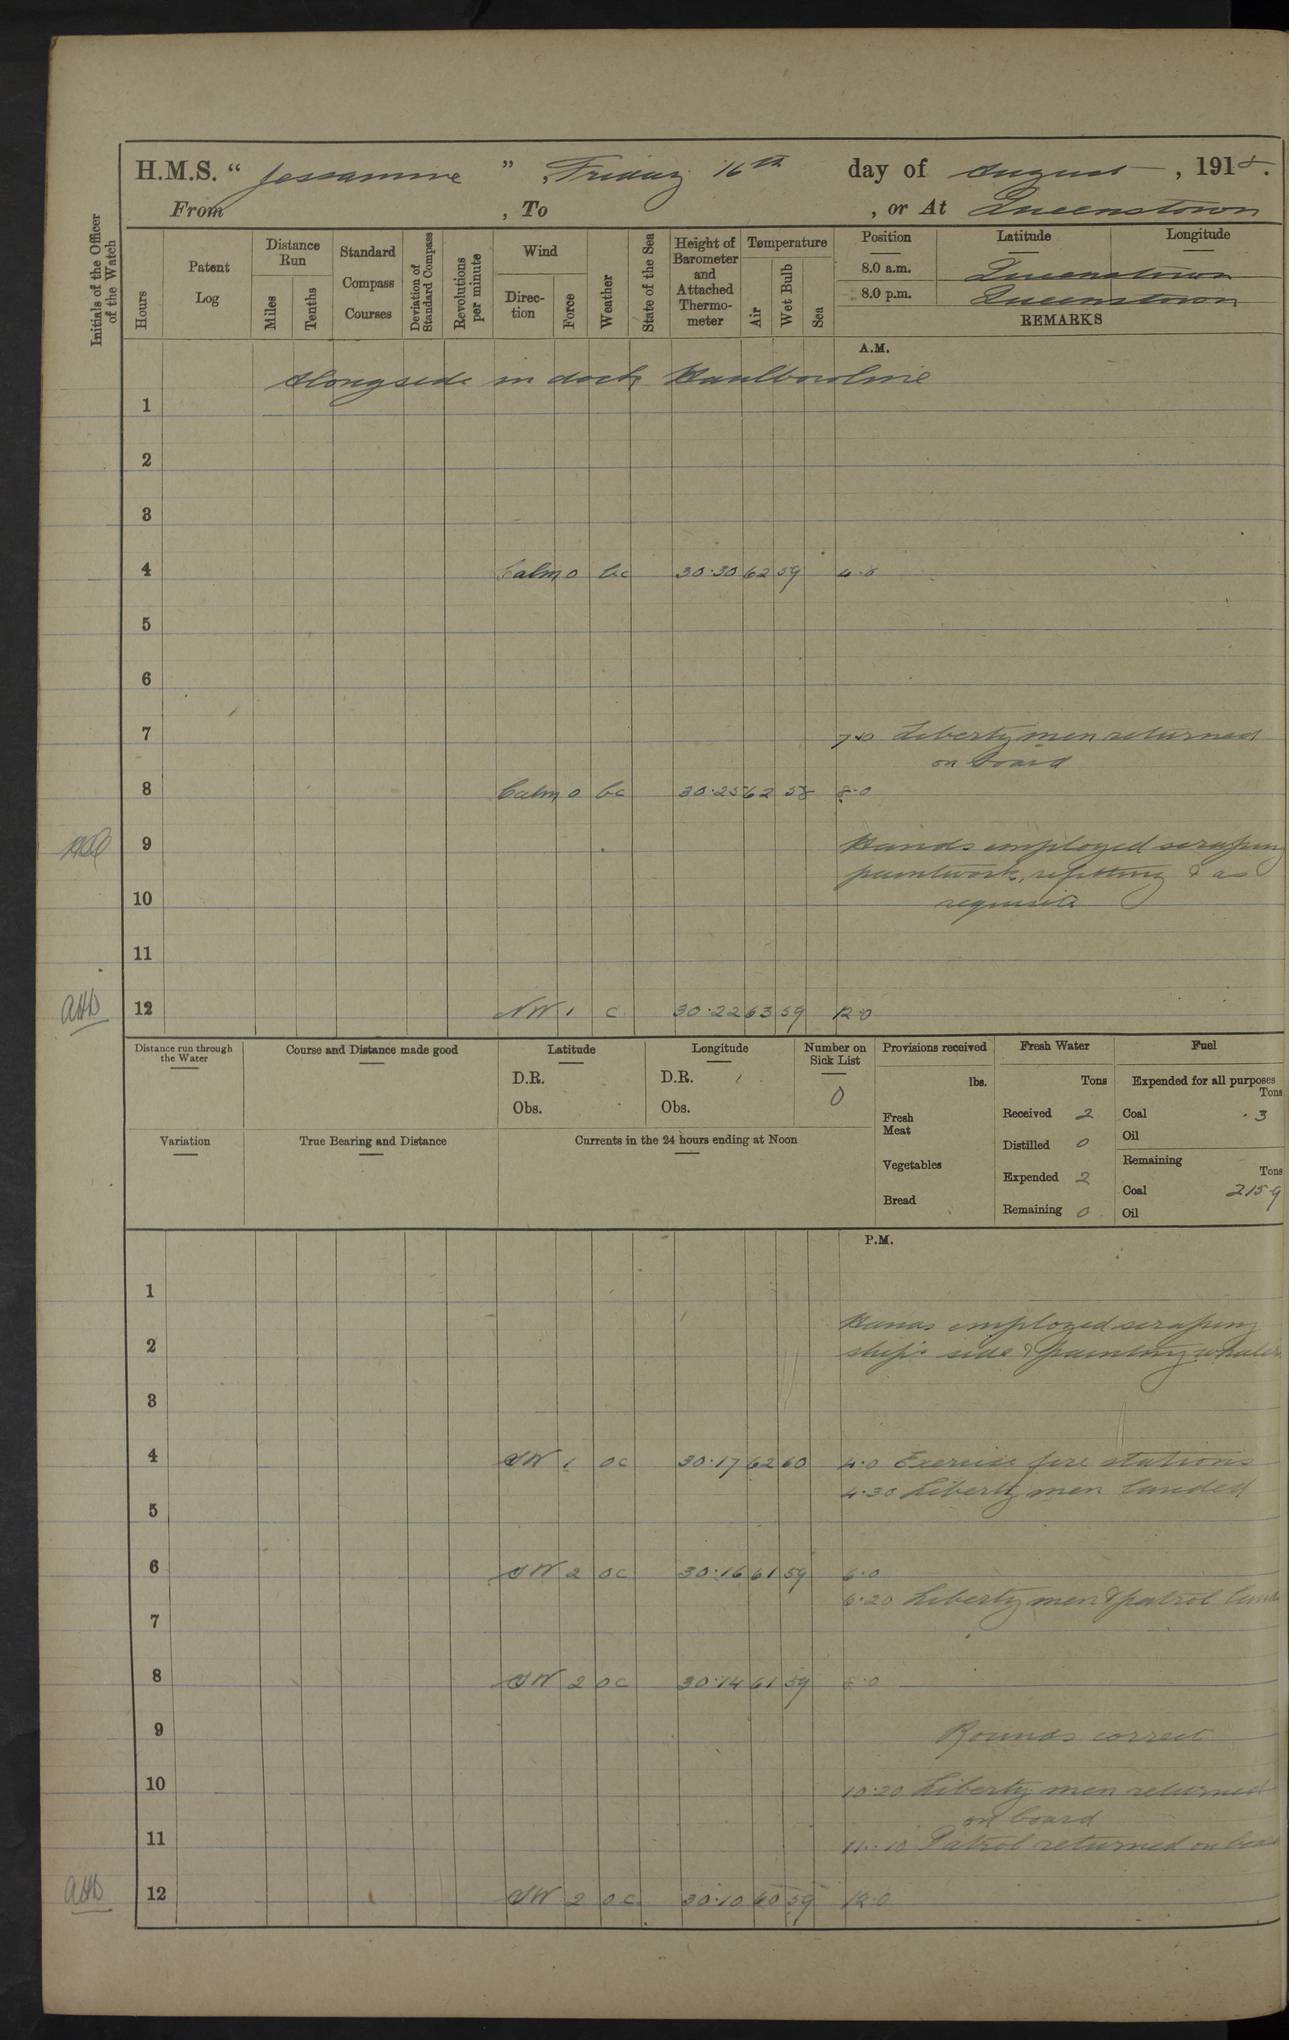 H.M.S. “ Jessamine ” , Friday 16th day of August , 1918.
From , To , or At Queenstown
Initials of the Officer of the Watch
Hours
Patent Log
Distance Run
Miles
Tenths
Standard Compass Courses
Deviation of Standard Compass
Revolutions per minute
Wind
Direction
Force
Weather
State of the Sea
Height of Barometer and Attached Thermometer
Temperature
Air
Wet Bulb
Sea
Position Latitude Longitude
8.0 a.m. Queenstown
8.0 p.m. Queenstown
REMARKS
A.M.
Alongside in dock Haulbowline
1
2
3
4 Calm 0 bc 30.30 62 59 4.0
5
6
7 7.0 Liberty men returned
on board
8 Calm 0 bc 30.25 62 58 8.0
9 Hands employed scraping
paintwork, refitting & as
10 requisite
11
AHD 12 NW 1 c 30.22 63 59 12.0
Distance run through the Water
Course and Distance made good
Latitude
D.R.
Obs.
Longitude
D.R.
Obs.
Number on Sick List
0
Provisions received
lbs.
Fresh Meat
Vegetables
Bread
Fresh Water
Tons
Received 2
Distilled 0
Expended 2
Remaining 0
Fuel
Expended for all purposes
Tons
Coal .3
Oil
Remaining
Tons
Coal 215.9
Oil
Variation
True Bearing and Distance
Currents in the 24 hours ending at Noon
P.M.
1
Hands employed scraping
2 ship's side & painting whaler
3
4 SW 1 oc 30.17 62 60 4.0 Exercise fire stations
4.30 Liberty men landed
5
6 SW 2 oc 30.16 61 59 6.0
6.20 Liberty men & patrol
7
8 SW 2 oc 30.14 61 59 8.0
9 Rounds correct
10 10.20 Liberty men returned
on board
11 11.10 Patrol returned on board
AHD 12 SW 2 oc 30.10 60 59 12.0